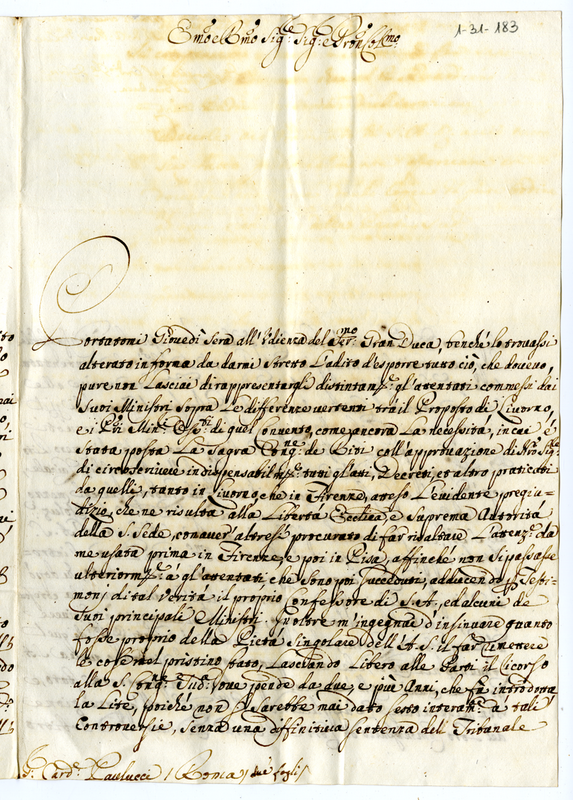 Emo e Rmo Sig.re Sig.re e Pron Colmo
1-31-183
Portatomi Giovedì sera all'Udienza del Sermo Gran Duca, benchè lo trovassi
alterato in forma da darmi stretto l'adito d'esporre tutto ciò, che dovevo,
pure non lasciai di rappresentargli distintamte gl'attentati commessi dai
suoi Ministri sopra le differenze vertenti trà il Proposto di Livorno,
e i PPri Min: di quel Convento, come ancora la necessità, in cui è
stata posta la Sagra Congne de Riti coll'approvazione di
di circoscrivere indispensabilmte tutti gl'atti, Decreti, et altro praticati
da quelli, tanto in Livorno che in Firenze, atteso l'evidente pregiu-
dizio, che ne risulta alla Libertà Ecclica, e suprema Autorità
della S. Sede, con aver' altresì procurato di far risaltare l'attenz.e da
me usata prima in Firenze, e poi in Pisa, affinchè non si passasse
ulteriormte à gl'attentati che sono poi succeduti, adducendo p Testi-
monj di tal verità il proprio Confessore di S. A., ed alcuni de
suoi principali Ministri. Inoltre m'ingegnai d'insinuare quanto
fosse proprio della Pietà singolare dell'A. S. il far rimettere
le cose nel pristino stato, lasciando libero alle Parti il ricorso
alla S. Cong. Sud.a ove pende da due, e più Anni, che fù introdotta
la Lite, poichè non si sarebbe mai dato esito interamte a tali
Controversie, senza una diffinitiva sentenza dell Tribunale
S.r Card.l Paulucci / Roma / due fogli /